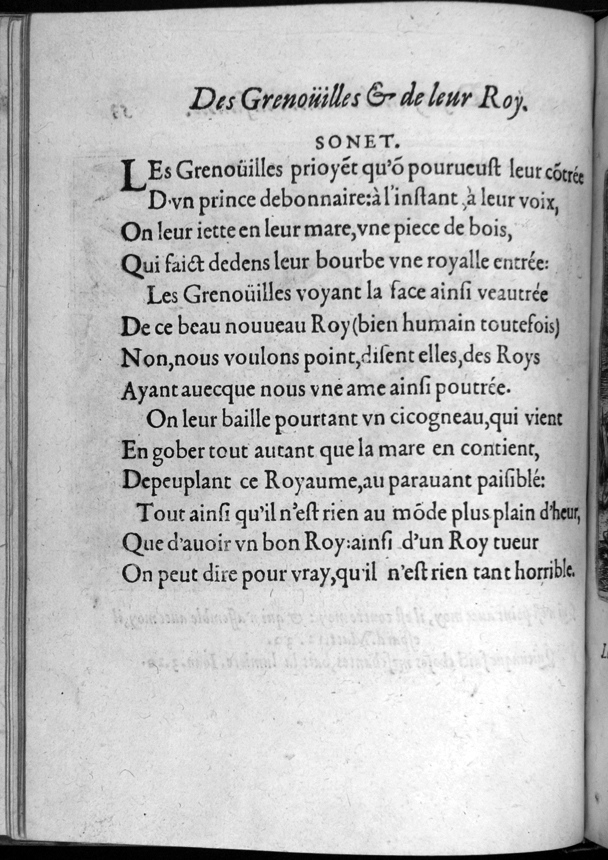 Des Grenoüilles & de leur Roy.
SONET.
LEs Grenoüilles prioyẽt qu'õ pourueuſt leur cõtrée
D'vn prince debonnaire:à l'inſtant ,à leur voix,
On leur iette en leur mare,vne piece de bois,
Qui faict dedens leur bourbe vne royalle entrée:
Les Grenoüilles voyant la face ainſi veautrée
De ce beau nouueau Roy(bien humain toutefois)
Non,nous voulons point,diſent elles,des Roys
Ayant auecque nous vne ame ainſi poutrée.
On leur baille pourtant vn cicogneau,qui vient
En gober tout autant que la mare en contient,
Depeuplant ce Royaume,au parauant paiſiblé:
Tout ainſi qu'il n'eſt rien au mõde plus plain d'heur,
Que d'auoir vn bon Roy:ainſi d'un Roy tueur
On peut dire pour vray,qu'il n'eſt rien tant horrible.